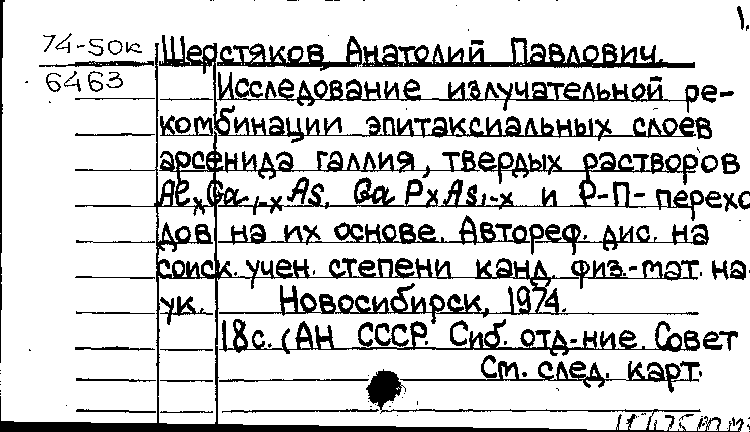 1.
74-50к Шерстяков Анатолий Павлович.
6463 Исследование излучательной ре-
комбинации эпитаксиальных слоев
арсенида галлия, твердых растворов
AlxGa1-xAs, GaPxAs1-x и Р-П-перехо
дов на их основе. Автореф. дис. на
соиск. учен. степени канд. физ.-мат. на-
ук. Новосибирск, 1974.
18с. (АН СССР. Сиб. отд-ние. Совет
См. след. карт.